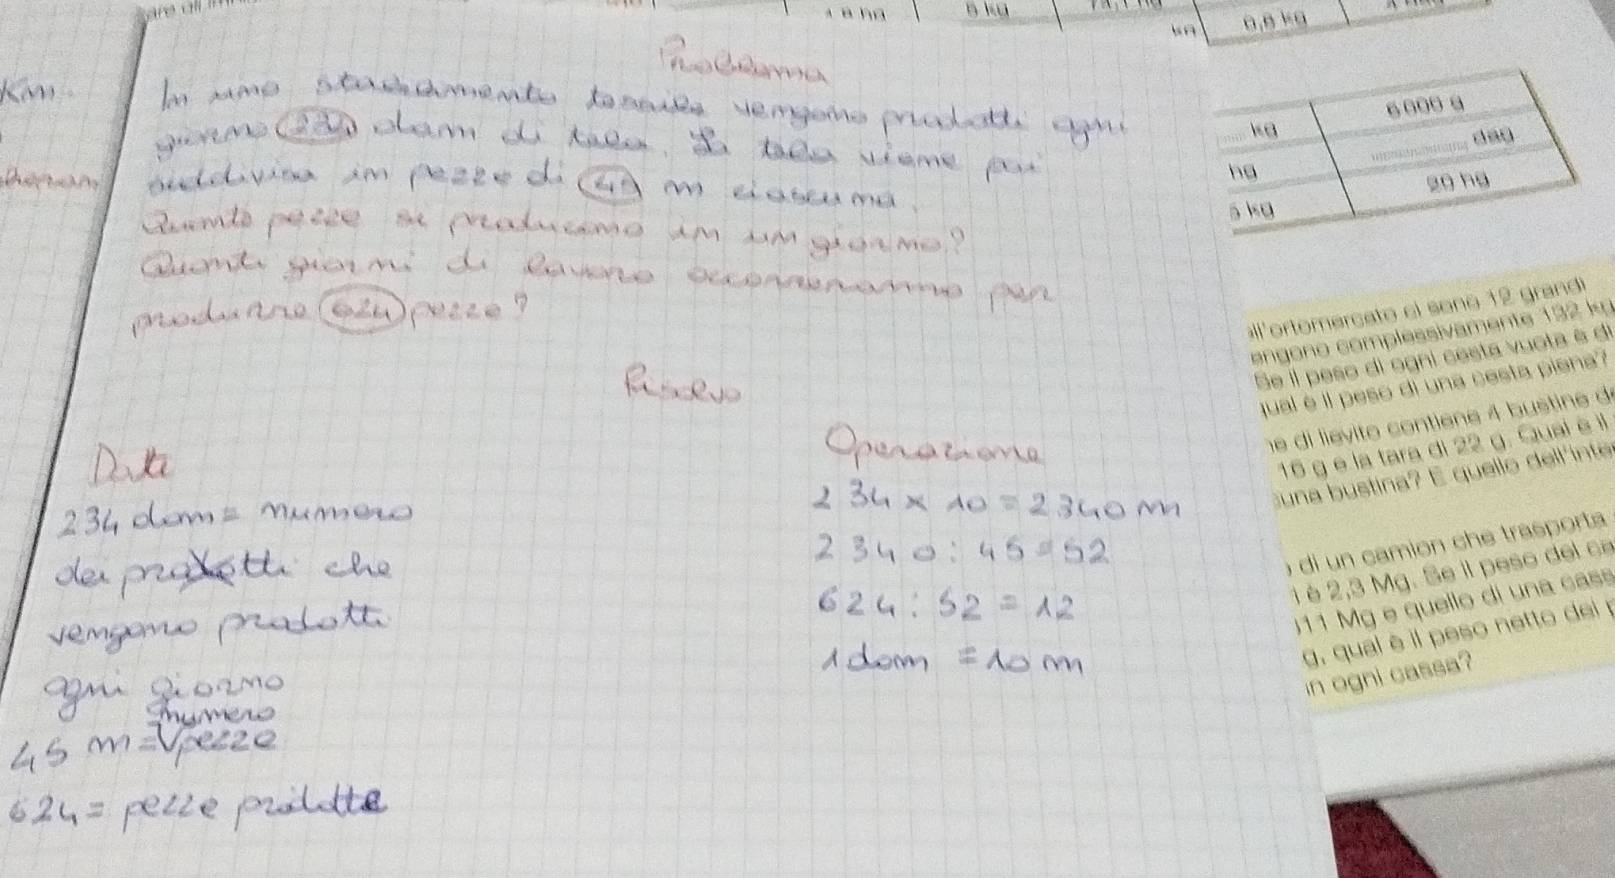 Problema
In uno stabilimento tessile vengono prodotti ogni
giorno 234 dam di tela. La tela viene poi
suddivisa in pezze di 45 m ciascuna.
Quante pezze si producono in un giorno?
Quanti giorni di lavoro occorreranno per
produrre 624 pezze?
Risolvo
Dati
234 dam = numero
dei prodotti che
vengono prodotti
ogni giorno
numero
45 m = V pezze
624 = pezze prodotte
Operazione
234 x 10 = 2340 m
2340 : 45 = 52
624 : 52 = 12
1 dam = 10 m
Km
8 kg
0,8 kg
kg
6000 g
hg
dag
5 kg
20 hg
all'ortomercato ci sono 12 grandi
engono complessivamente 192 kg
Se il peso di ogni cesta vuota è di
qual è il peso di una cesta piena?
ne di lievito contiene 4 bustine d
16 g e la tara di 22 g. Qual è il
una bustina? E quello dell'inte
di un camion che trasporta
i è 2,3 Mg. Se il peso del ca
11 Mg e quello di una cass
g, qual è il peso netto del p
in ogni cassa?